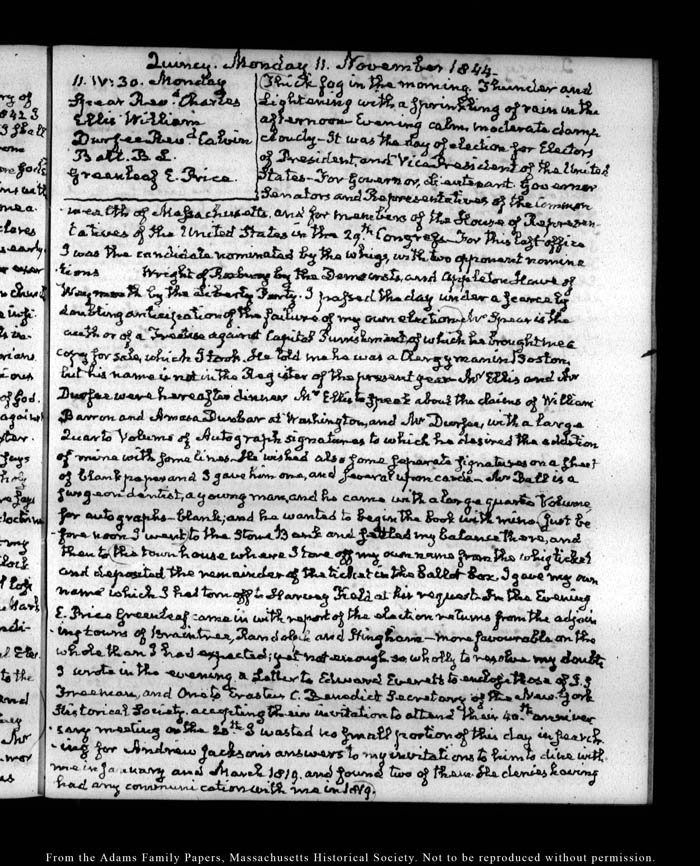 Quincy. Monday 11. November 1844.
11. IV:30. Monday
Spear Revd. Charles
Ellis William
Durfee Revd. Calvin
Ball. B. L.
Greenleaf E. Price.
Thick fog in the morning. Thunder and
Lightening with a sprinkling of rain in the
afternoon Evening calm, moderate damp
cloudy— It was the day of election for Electors
of President, and Vice President of the United
States— For Governor, Lieutenant Governor
Senators and Representatives of the Common
wealth of Massachusetts, and for members of the House of Represen-
tatives of the United States in the 29th Congress. For this last office
I was the candidate nominated by the whigs, with two opponent nomina
tions Wright of Roxbury by the Democrats, and Appleton Howe of
Weymouth by the Liberty Party. I passed the day under a scarcely
doubting anticipation of the failure of my own election. Mr Spear is the
author of a Treatise against Capital Punishment of which he brought me a
copy for sale, which I took. He told me he was a Clergyman in Boston,
but his name is not in the Register of the present year. Mr Ellis and Mr
Durfee were here after dinner. Mr Ellis to speak about the claims of William
Barron and Amasa Dunbar at Washington, and Mr Durfee, with a large
Quarto Volume of Autograph signatures to which he desired the addition
of mine with some lines. He wished also some separate signatures on a sheet
of blank paper and I gave him one, and several upon cards— Mr Ball is a
surgeon dentist, a young man, and he came with a large quarto Volume
for autographs— blank; and he wanted to begin the book with mine. Just be
fore noon I went to the Stone Bank and settled my balance there, and
then to the town house where I tore off my own name from the whig ticket
and deposited the remainder of the ticket in the ballot box. I gave my own
name which I had torn off to Harvey Field at his request. In the Evening
E. Price Greenleaf came in with report of the election returns from the adjoin
ing towns of Braintree, Randolph and Hingham— more favourable on the
whole than I had expected; yet not enough so wholly to resolve my doubts
I wrote in the evening a Letter to Edward Everett to enclose those of
Freeman, and One to Erastus C. Benedict Secretary of the New-York
Historical Society, accepting their invitation to attend their 40th anniver
sary meeting on the 20th. I wasted no small portion of this day in search
ing for Andrew Jacksons answers to my invitations to him to dine with
me in January and March 1819. and found two of them. He denies having
had any communication with me in 1819.
From the Adams Family Papers, Massachusetts Historical Society. Not to be reproduced without permission.